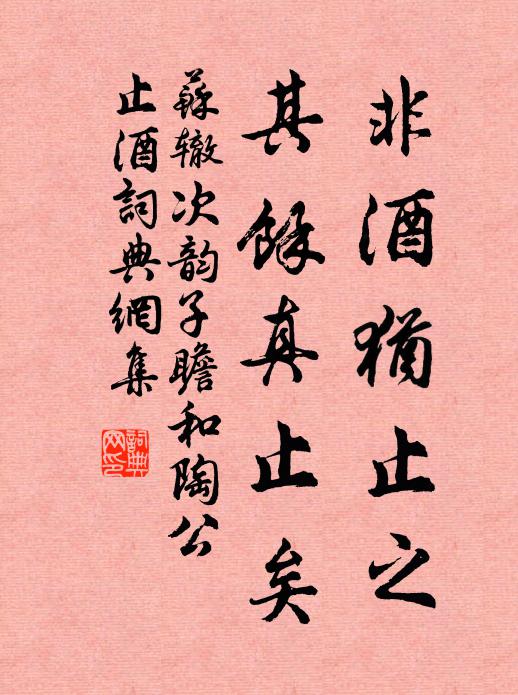 非酒猶止之
其餘真止矣
蘇辙次韵子瞻和陶公
止酒詞典網集
詞典网印